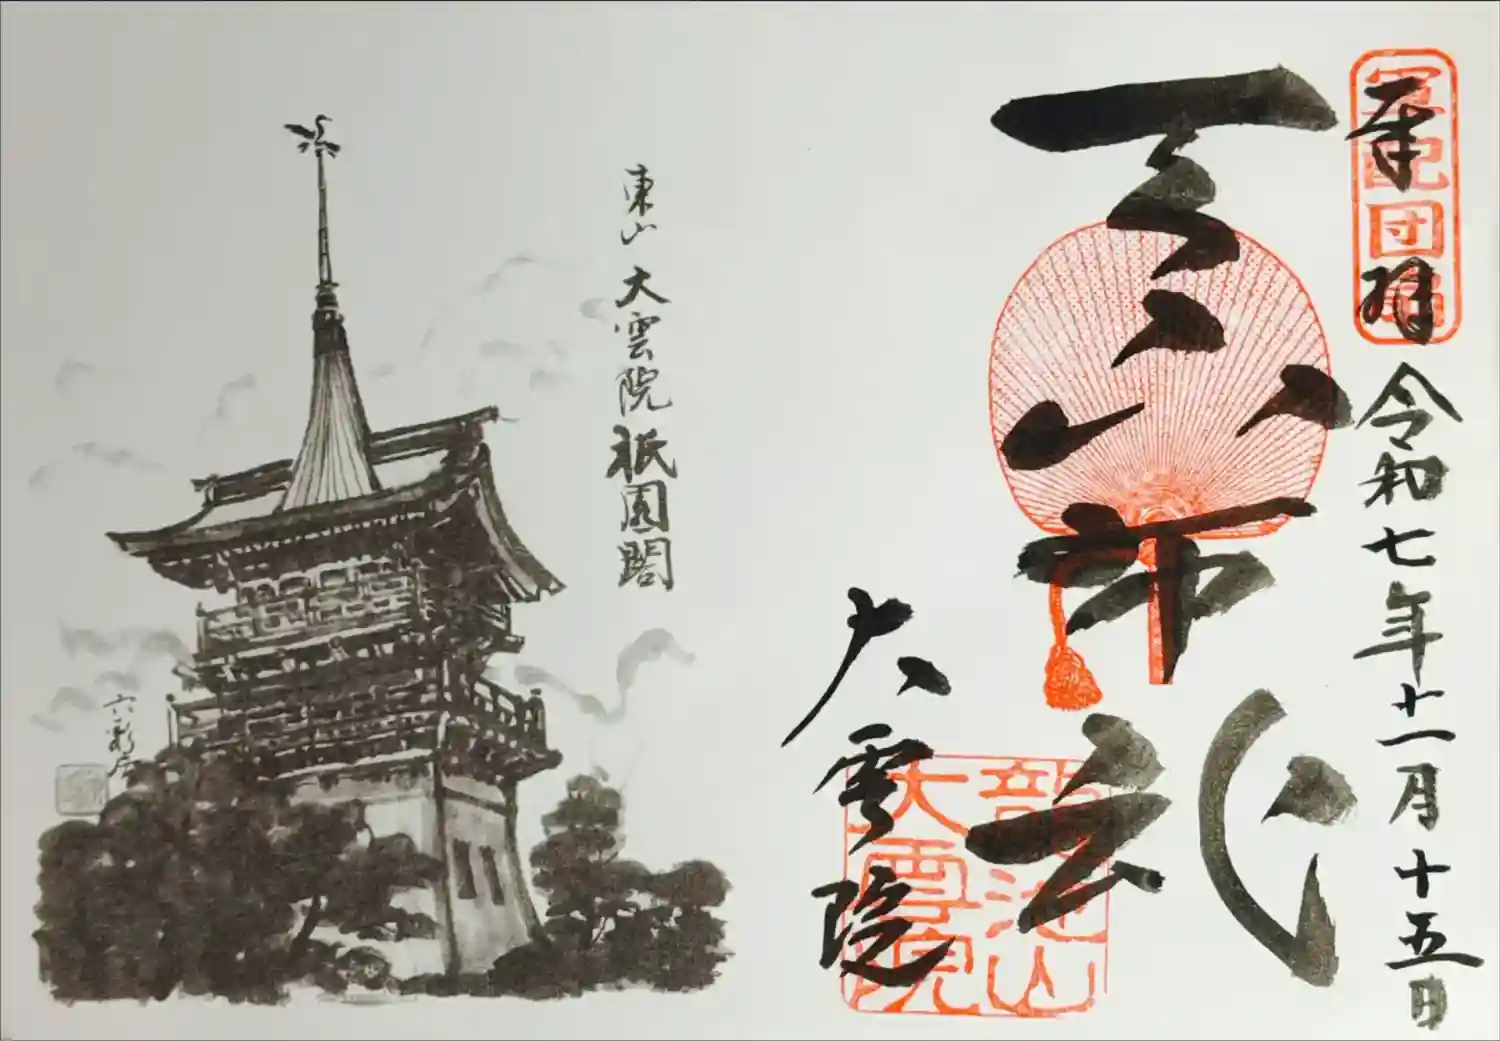 奉拝 令和七年十一月十五日
軍配団扇
天下布武
大雲院
龍池山
大雲院
東山 大雲院 祇園閣